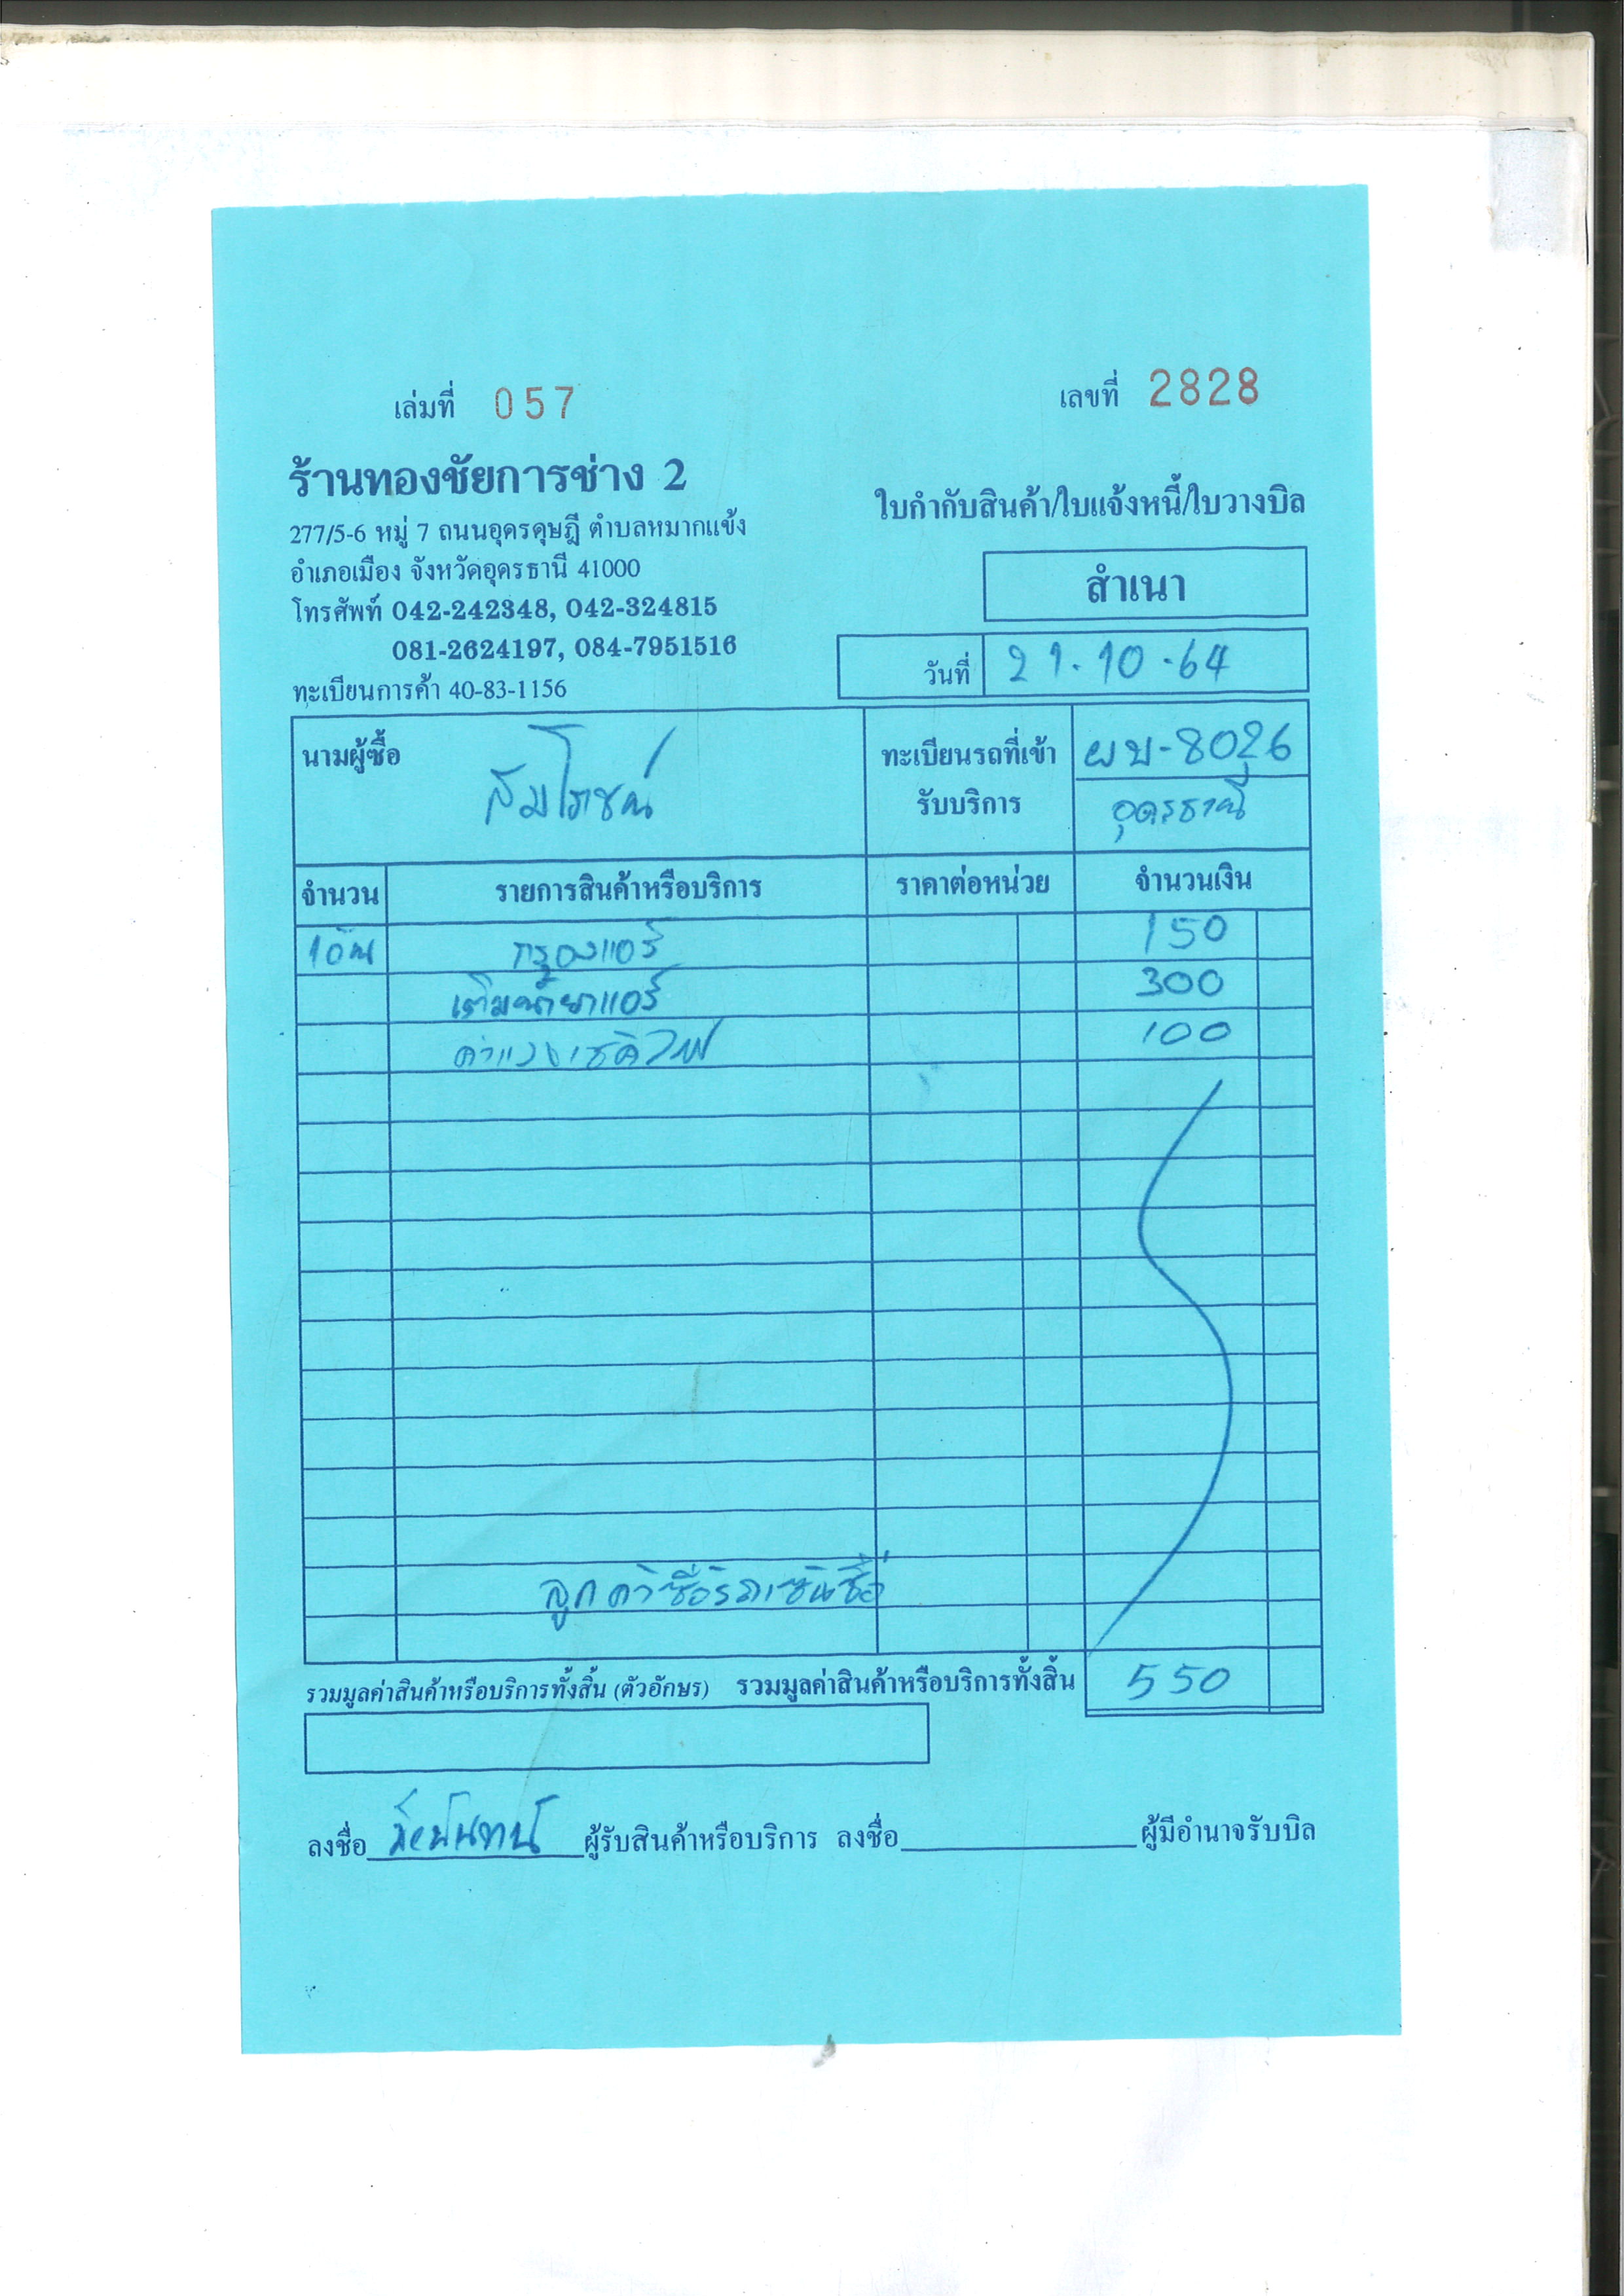 เล่มที่ 057
เลขที่ 2828
ร้านทองชัยการช่าง 2
ใบกำกับสินค้า/ใบแจ้งหนี้/ใบวางบิล
277/5-6 หมู่ 7 ถนนอุดรดุษฎี ตำบลหมากแข้ง
อำเภอเมือง จังหวัดอุดรธานี 41000
สำเนา
โทรศัพท์ 042-242348, 042-324815
081-2624197, 084-7951516
วันที่ 21.10.64
ทะเบียนการค้า 40-83-1156
นามผู้ซื้อ
ทะเบียนรถที่เข้า ผบ-8026
รับบริการ อุดรธานี
จำนวน รายการสินค้าหรือบริการ ราคาต่อหน่วย จำนวนเงิน
1อัน กรองแอร์ 150
เติมน้ำยาแอร์ 300
ค่าแรงเช็คไฟ 100
รวมมูลค่าสินค้าหรือบริการทั้งสิ้น (ตัวอักษร) รวมมูลค่าสินค้าหรือบริการทั้งสิ้น 550
ลงชื่อ ผู้รับสินค้าหรือบริการ ลงชื่อ ผู้มีอำนาจรับบิล